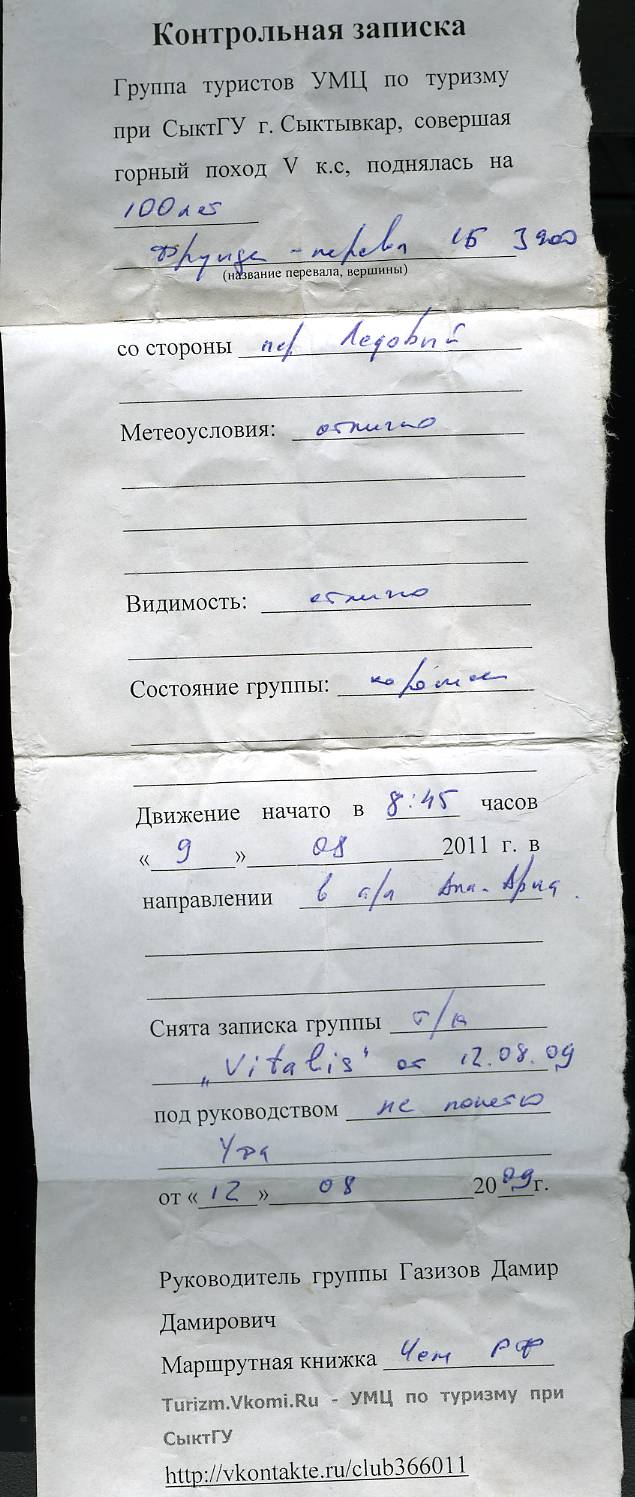 Контрольная записка
Группа туристов УМЦ по туризму
при СыктГУ г. Сыктывкар, совершая
горный поход V к.с, поднялась на
100 лет
Фрунзе - перевал 1Б 3900
(название перевала, вершины)
со стороны пер Ледовый
Метеоусловия: отлично
Видимость: отлично
Состояние группы: хорошее
Движение начато в 8:45 часов
« 9 » 08 2011 г. в
направлении в а/л Ала-Арча.
Снята записка группы т/к
„Vitalis" от 12.08.09
под руководством не понятно
от « 12 » 08 2009г.
Руководитель группы Газизов Дамир
Дамирович
Маршрутная книжка Чем РФ
Turizm.Vkomi.Ru - УМЦ по туризму при
СыктГУ
http://vkontakte.ru/club366011